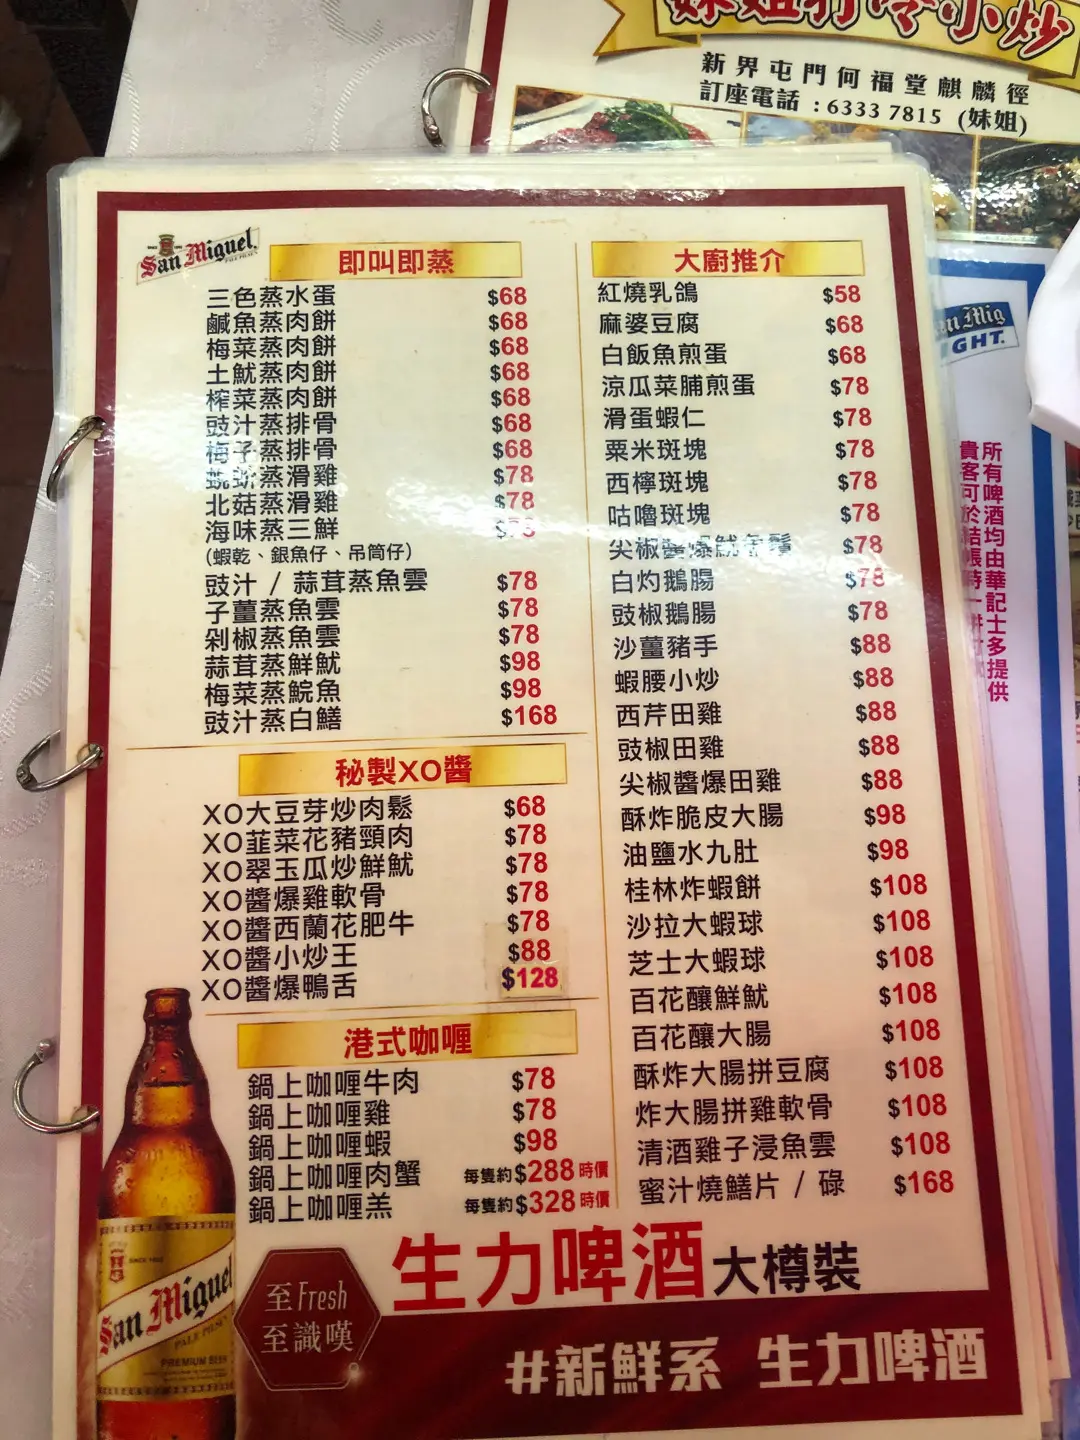 妹姐打冷小炒
新界屯門何福堂麒麟徑
訂座電話：6333 7815 (妹姐)
San Miguel
即叫即蒸
三色蒸水蛋 $68
鹹魚蒸肉餅 $68
梅菜蒸肉餅 $68
土魷蒸肉餅 $68
榨菜蒸肉餅 $68
豉汁蒸排骨 $68
梅子蒸排骨 $68
蒸滑雞 $78
北菇蒸滑雞 $78
海味蒸三鮮 $78
(蝦乾、銀魚仔、吊筒仔)
豉汁 / 蒜茸蒸魚雲 $78
子薑蒸魚雲 $78
剁椒蒸魚雲 $78
蒜茸蒸鮮魷 $98
梅菜蒸鯇魚 $98
豉汁蒸白鱔 $168
秘製XO醬
XO大豆芽炒肉鬆 $68
XO韮菜花豬頸肉 $78
XO翠玉瓜炒鮮魷 $78
XO醬爆雞軟骨 $78
XO醬西蘭花肥牛 $78
XO醬小炒王 $88
XO醬爆鴨舌 $128
港式咖喱
鍋上咖喱牛肉 $78
鍋上咖喱雞 $78
鍋上咖喱蝦 $98
鍋上咖喱肉蟹 每隻約$288時價
鍋上咖喱羔 每隻約$328時價
大廚推介
紅燒乳鴿 $58
麻婆豆腐 $68
白飯魚煎蛋 $68
涼瓜菜脯煎蛋 $78
滑蛋蝦仁 $78
粟米斑塊 $78
西檸斑塊 $78
咕嚕斑塊 $78
尖椒醬爆魷魚鬚 $78
白灼鵝腸 $78
豉椒鵝腸 $78
沙薑豬手 $88
蝦腰小炒 $88
西芹田雞 $88
豉椒田雞 $88
尖椒醬爆田雞 $88
酥炸脆皮大腸 $98
油鹽水九肚 $98
桂林炸蝦餅 $108
沙拉大蝦球 $108
芝士大蝦球 $108
百花釀鮮魷 $108
百花釀大腸 $108
酥炸大腸拼豆腐 $108
炸大腸拼雞軟骨 $108
清酒雞子浸魚雲 $108
蜜汁燒鱔片 / 碌 $168
生力啤酒大樽裝
至Fresh
至識嘆
#新鮮系 生力啤酒
San Miguel
PALE PILSEN
PREMIUM BEER
San Mig
GHT.
所有啤酒均由華記士多提供
貴客可於結賬時一併